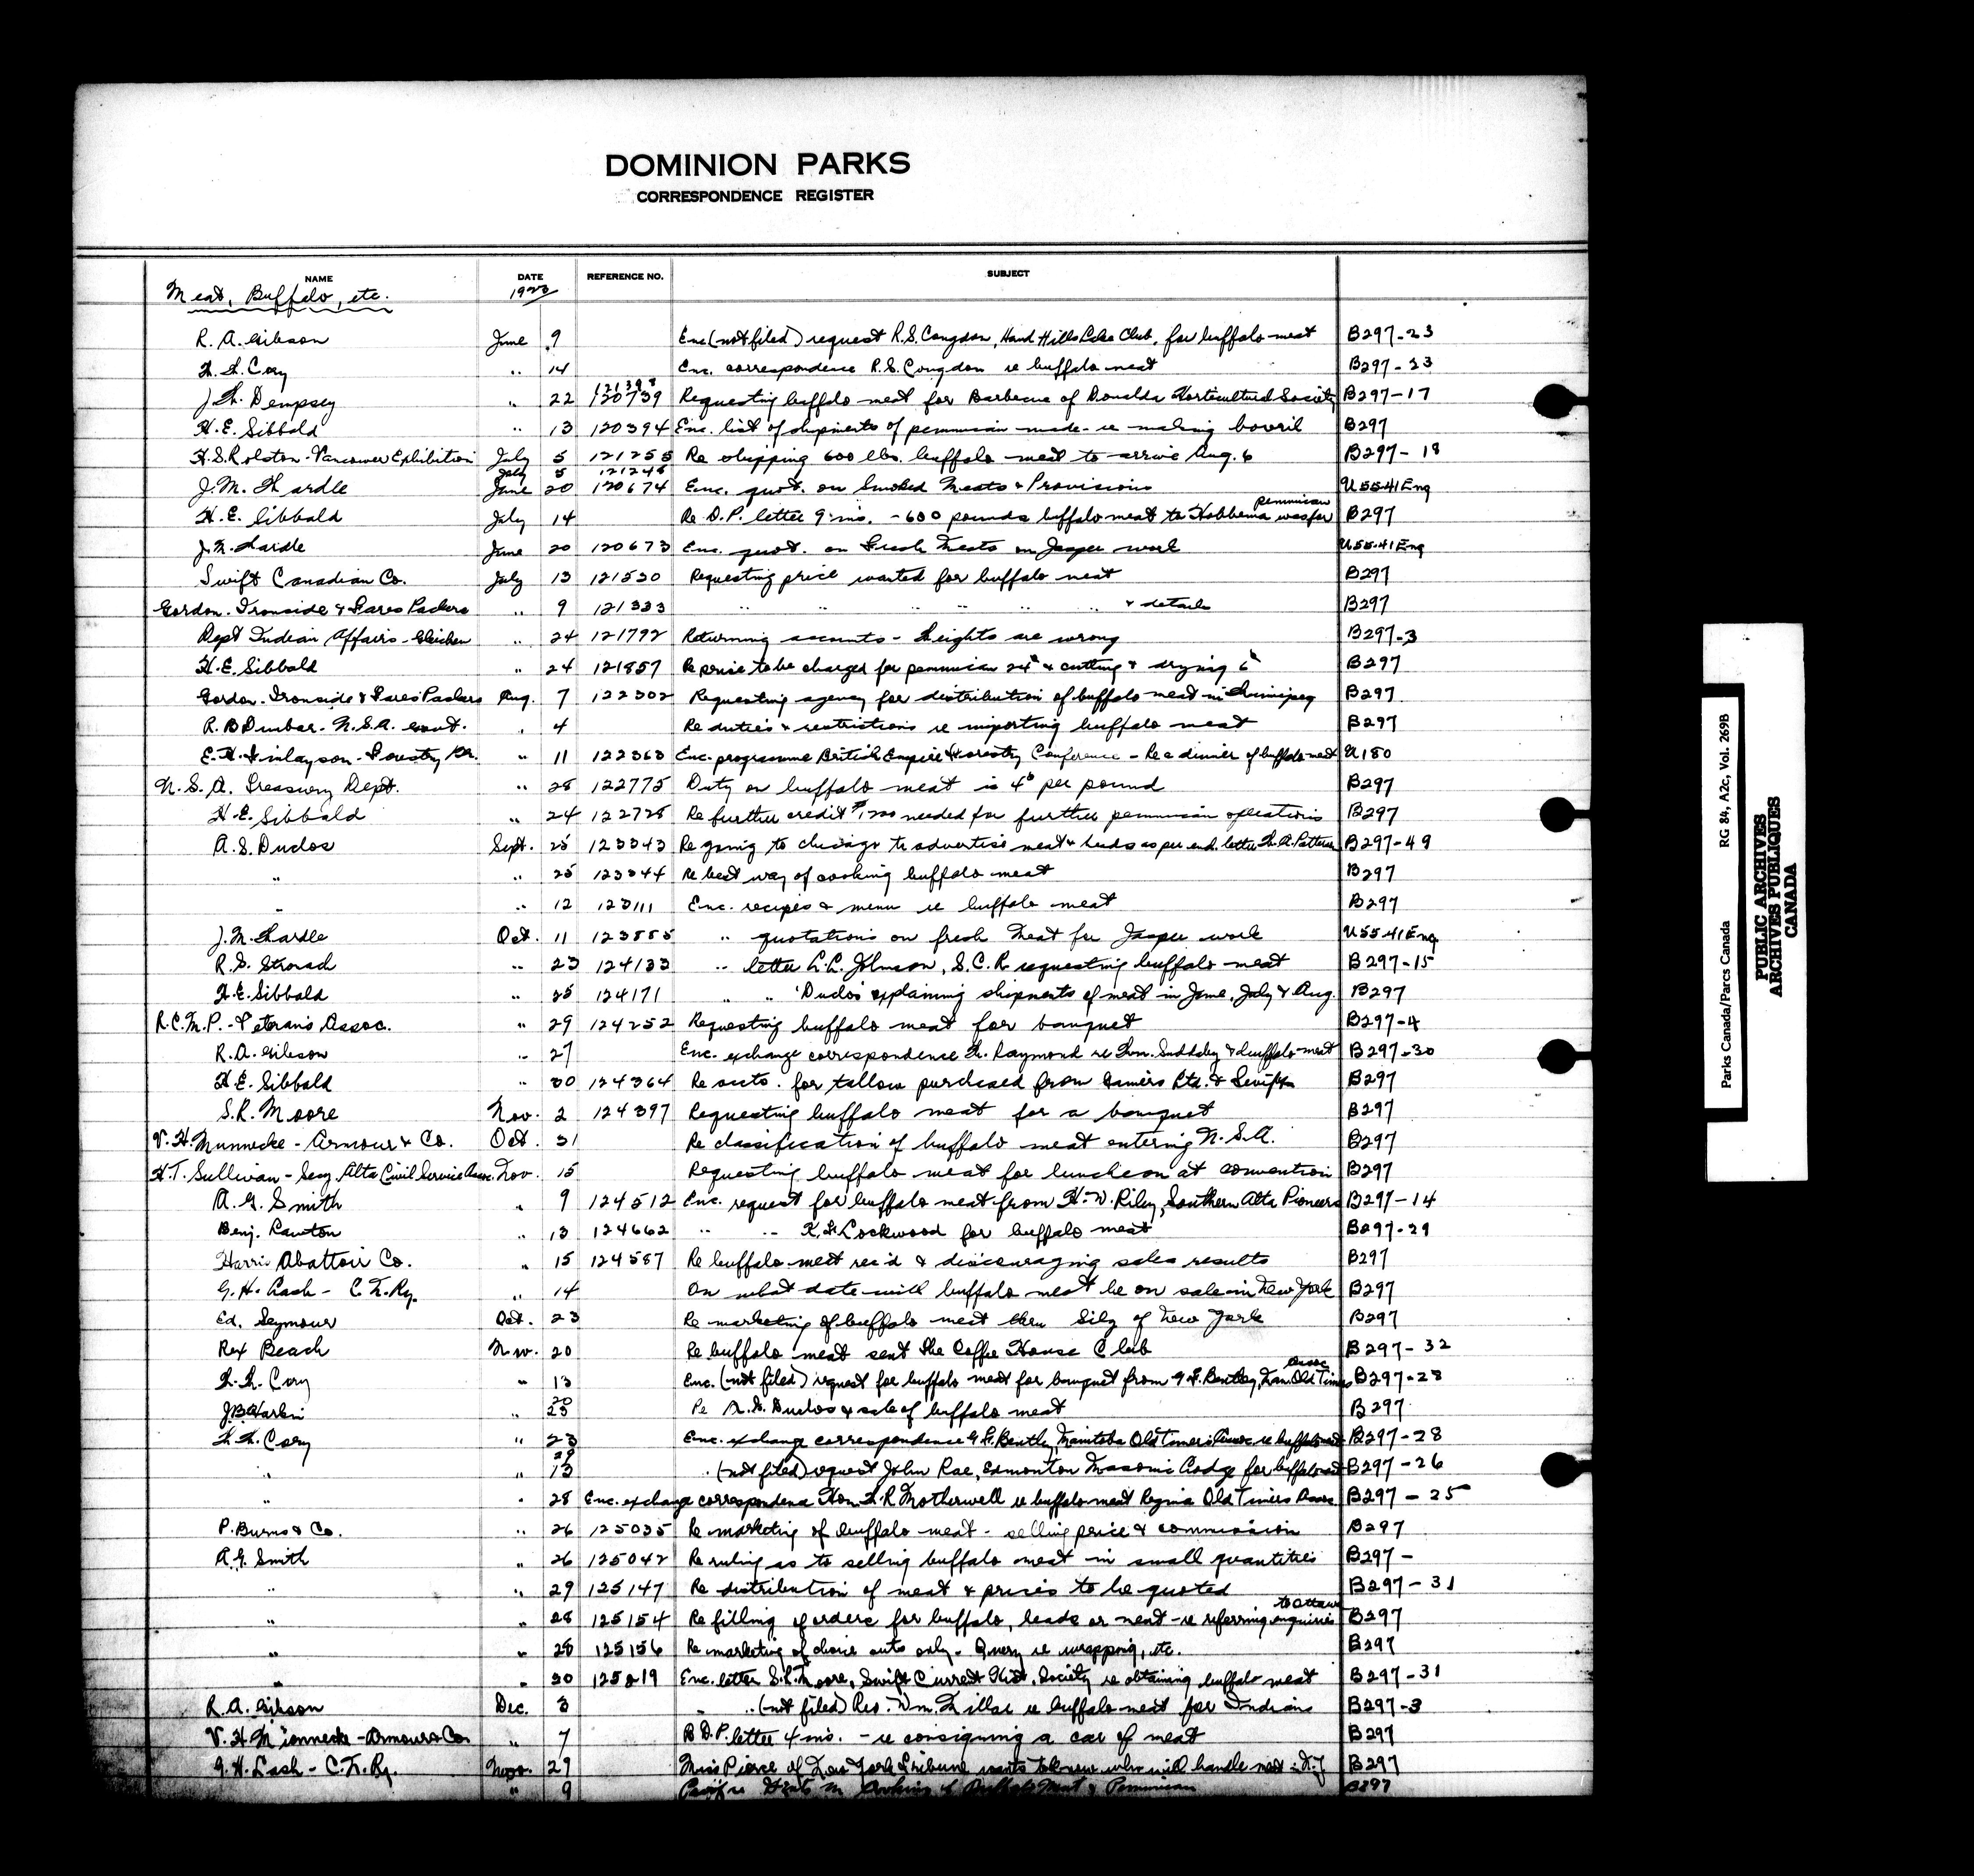 DOMINION PARKS
CORRESPONDENCE REGISTER
NAME DATE REFERENCE NO. SUBJECT
Meat, Buffalo, etc. 1923
R. A. Gibson June 9 Enc (not filed) request R.S. Congdon, Hand Hills Lake Club, for buffalo meat B297-23
W. W. Cory " 14 Enc. correspondence R.S. Congdon re buffalo meat B297-23
121398
J. W. Dempsey " 22 120739 Requesting buffalo meat for Barbecue of Donalda Horticultural Society B297-17
H.E. Sibbald " 13 120394 Enc. list of shipments of pemmican made - re making bovril B297
H.S. Rolston - Vancouver Exhibition July 5 121255 Re shipping 600 lbs. buffalo meat to arrive Aug. 6 B297-18
July 5 121248
J. M. Wardle June 20 120674 Enc. quot. on Smoked Meats & Provisions U55-41 Eng
H.E. Sibbald July 14 Re D.P. letter 9 ins. - 600 pounds buffalo meat to Hobbema was for pemmican B297
J. M. Wardle June 20 120673 Enc. quot. on Fresh Meats on Jasper work U55-41 Eng
Swift Canadian Co. July 13 121530 Requesting price wanted for buffalo meat B297
Gordon. Ironside & Fares Packers " 9 121333 " " " " " " & details B297
Dept Indian Affairs - Gleichen " 24 121792 Returning accounts - Weights are wrong B297-3
H.E. Sibbald " 24 121857 Re price to be charged for pemmican 24¢ & cutting & drying 6¢ B297
Gordon. Ironside & Fares Packers Aug. 7 122302 Requesting agency for distribution of buffalo meat in Winnipeg B297
R. B. Dunbar - U.S.A. Govt. " 4 Re duties & restrictions re importing buffalo meat B297
E. H. Finlayson - Forestry Br. " 11 122363 Enc. programme British Empire Forestry Conference - Re a dinner of buffalo meat U180
U. S. A. Treasury Dept. " 28 122775 Duty on buffalo meat is 4¢ per pound B297
H.E. Sibbald " 24 122728 Re further credit needed for further pemmican operations B297
A. S. Duclos Sept. 25 123343 Re going to Chicago to advertise meat & heads as per encl. letter W. A. Patterson B297-49
" " 25 123344 Re best way of cooking buffalo meat B297
" " 12 123111 Enc. recipes & menu re buffalo meat B297
J. M. Wardle Oct. 11 123855 " quotations on fresh meat for Jasper work U55-41 Eng.
R. S. Stronach " 23 124133 " letter L. L. Johnson, S.C.R. requesting buffalo meat B297-15
H.E. Sibbald " 25 124171 " " Duclos' explaining shipments of meat in June, July & Aug. B297
R.C.M.P. - Veterans Assoc. " 29 124252 Requesting buffalo meat for banquet B297-4
R.A. Gibson " 27 Enc. exchange correspondence W. Raymond re & buffalo meat B297-30
H.E. Sibbald " 30 124364 Re accts. for tallow purchased from Gainers Ltd. & Swifts B297
S.R. Moore Nov. 2 124397 Requesting buffalo meat for a banquet B297
V. H. Munnecke - Armour & Co. Oct. 31 Re classification of buffalo meat entering U.S.A. B297
H.T. Sullivan - Secy. Alta Civil Service Assn. Nov. 15 Requesting buffalo meat for luncheon at convention B297
A. G. Smith " 9 124512 Enc. request for buffalo meat from H. W. Riley, Southern Alta Pioneers B297-14
Benj. Lawton " 13 124662 " " K. F. Lockwood for buffalo meat B297-29
Harris Abattoir Co. " 15 124587 Re buffalo meat rec'd & discouraging sales results B297
G. H. Lash - C. N. Ry. " 14 On what date will buffalo meat be on sale in New York B297
Ed. Seymour Oct. 23 Re marketing of buffalo meat thru Silz of New York B297
Rex Beach Nov. 20 Re buffalo meat sent the Coffee House Club B297-32
W. W. Cory " 13 Enc. (not filed) request for buffalo meat for banquet from G. F. Bentley, Man. Old Timers Assoc B297-28
J.B. Harkin " 20 23 Re A. S. Duclos & sale of buffalo meat B297
W. W. Cory " 23 Enc. exchange correspondence G. F. Bently, Manitoba Old Timers Assoc re buffalo meat B297-28
" " 29 13 " (not filed) request John Rae, Edmonton Masonic Lodge for buffalo meat B297-26
" " 28 Enc. exchange correspondence Hon. W. R. Motherwell re buffalo meat Regina Old Timers Assoc B297-25
P. Burns & Co. " 26 125035 Re marketing of buffalo meat - selling price & commission B297
A. G. Smith " 26 125042 Re ruling as to selling buffalo meat in small quantities B297-
" " 29 125147 Re distribution of meat & prices to be quoted B297-31
" " 28 125154 Re filling of orders for buffalo, heads or meat - re referring enquiries to Ottawa B297
" " 28 125156 Re marketing of choice cuts only. Query re wrapping, etc. B297
" " 30 125219 Enc. letter S. R. Moore, Swift Current Hist. Society re obtaining buffalo meat B297-31
R. A. Gibson Dec. 3 " (not filed) Rev. Wm. re buffalo meat for Indians B297-3
V. H. Munnecke - Armour & Co " 7 Re D.P. letter 4 ins. - re consigning a car of meat B297
G. H. Lash - C. N. Ry. Nov. 27 Miss Pierce of New York Tribune wants to know who will handle meat in N.Y B297
" 9 re Hints on Cooking of Buffalo Meat & Pemmican B297
Parks Canada/Parcs Canada RG 84, A2c, Vol. 269B
PUBLIC ARCHIVES
ARCHIVES PUBLIQUES
CANADA